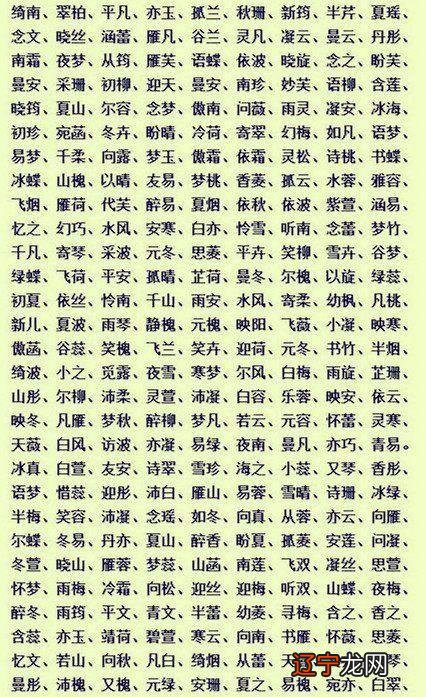 绮南、翠柏、平凡、亦玉、孤兰、秋珊、新筠、半芹、夏瑶、
念文、晓丝、涵蕾、雁凡、谷兰、灵凡、凝云、曼云、丹彤、
南霜、夜梦、从筠、雁芙、语蝶、依波、晓旋、念之、盼芙、
曼安、采珊、初柳、迎天、曼安、南珍、妙芙、语柳、含莲、
晓筠、夏山、尔容、念梦、傲南、问薇、雨灵、凝安、冰海、
初珍、宛菡、冬卉、盼晴、冷荷、寄翠、幻梅、如凡、语梦、
易梦、千柔、向露、梦玉、傲霜、依霜、灵松、诗桃、书蝶、
冰蝶、山槐、以晴、友易、梦桃、香菱、孤云、水蓉、雅容、
飞烟、雁荷、代芙、醉易、夏烟、依秋、依波、紫萱、涵易、
忆之、幻巧、水风、安寒、白亦、怜雪、听南、念蕾、梦竹、
千凡、寄琴、采波、元冬、思菱、平卉、笑柳、雪卉、谷梦、
绿蝶、飞荷、平安、孤晴、芷荷、曼冬、尔槐、以旋、绿蕊、
初夏、依丝、怜南、千山、雨安、水风、寄柔、幼枫、凡桃、
新儿、夏波、雨琴、静槐、元槐、映阳、飞薇、小凝、映寒、
傲菡、谷蕊、笑槐、飞兰、笑卉、迎荷、元冬、书竹、半烟、
绮波、小之、觅露、夜雪、寒梦、尔风、白梅、雨旋、芷珊、
山彤、尔柳、沛柔、灵萱、沛凝、白容、乐蓉、映安、依云、
映冬、凡雁、梦秋、醉柳、梦凡、若云、元容、怀蕾、灵寒、
天薇、白风、访波、亦凝、易绿、夜南、曼凡、亦巧、青易。
冰真、白萱、友安、诗翠、雪珍、海之、小蕊、又琴、香彤、
语梦、惜蕊、迎彤、沛白、雁山、易蓉、雪晴、诗珊、冰绿、
半梅、笑容、沛凝、念瑶、如冬、向真、从蓉、亦云、向雁、
尔蝶、冬易、丹亦、夏山、醉香、盼夏、孤菱、安莲、问凝、
冬萱、晓山、雁蓉、梦蕊、山菡、南莲、飞双、凝丝、思萱、
怀梦、雨梅、冷霜、向松、迎丝、迎梅、听双、山蝶、夜梅、
醉冬、雨筠、平文、青文、半蕾、幼菱、寻梅、含之、香之、
含蕊、亦玉、靖荷、碧萱、寒云、向南、书雁、怀薇、思菱、
忆文、若山、向秋、凡白、绮烟、从蕾、天
曼彤、沛槐、又槐、元绿、安珊、夏之、易槐、宛亦、白翠、
辽宁龙网